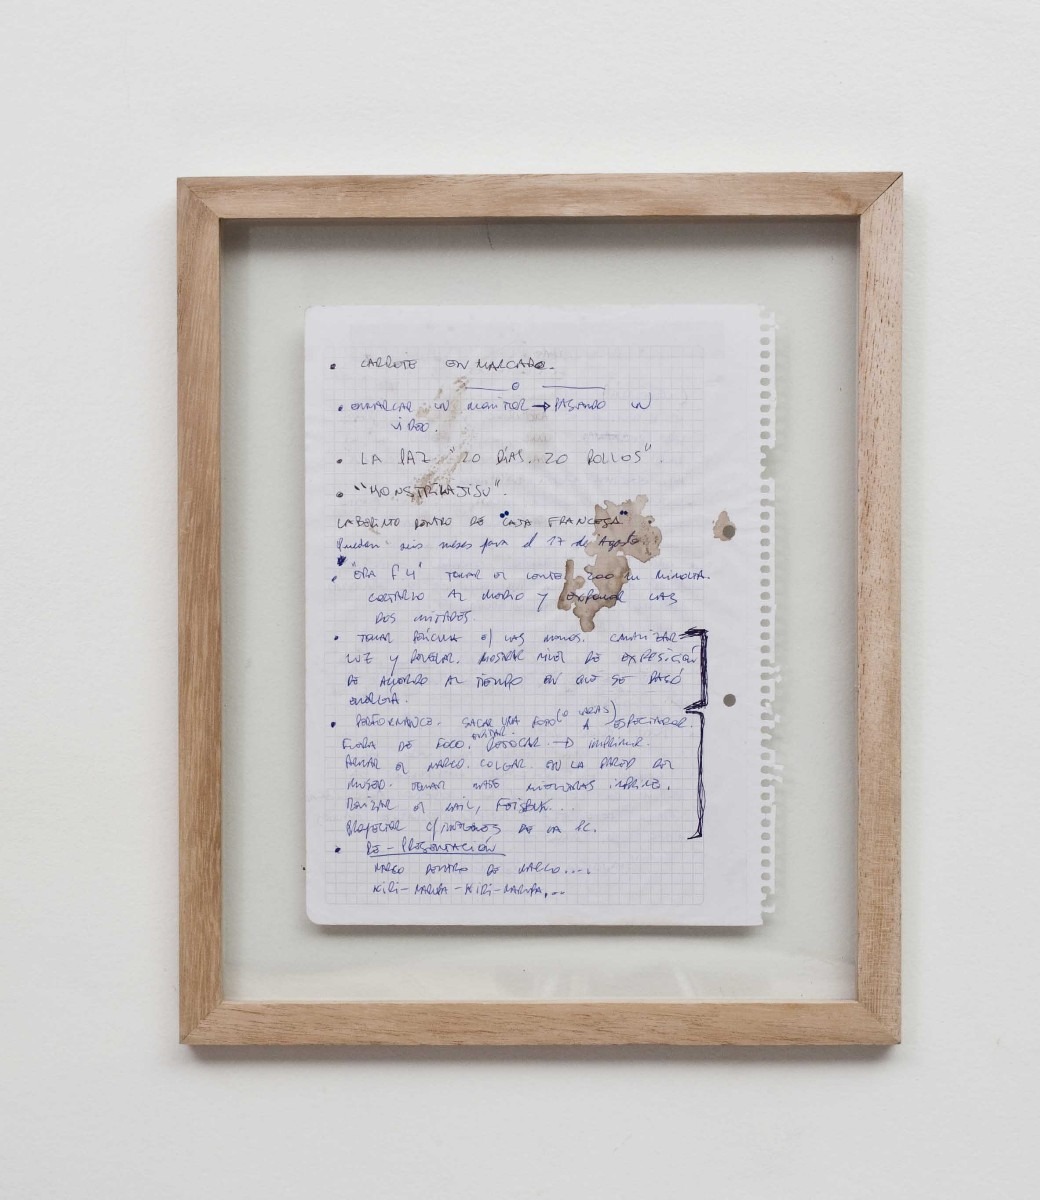 • CARRETE ENMARCADO.
• ENMARCAR UN MONITOR → PASANDO UN
VIDEO.
• LA PAZ "20 DÍAS. 20 ROLLOS".
• "MONSTRIKAJISU".
LABERINTO DENTRO DE "CAJA FRANCESA"
Quedan seis meses para el 17 de Agosto
• "ERA F4" TOMAR EL LENTE 200 MINOLTA.
CORTARLO AL MEDIO Y EXPONER LAS
DOS MITADES.
• TOMAR PELÍCULA C/ LAS MANOS. CANALIZAR
LUZ Y REVELAR. MOSTRAR NIVEL DE EXPOSICIÓN
DE ACUERDO AL TIEMPO EN QUE SE PASÓ
ENERGÍA.
• PERFORMANCE. SACAR UNA FOTO (O VARIAS) A ESPECTADOR.
FUERA DE FOCO. RETOCAR → IMPRIMIR.
ARMAR EL MARCO. COLGAR EN LA PARED DEL
MUSEO. TOMAR MATE MIENTRAS IMPRIME.
REVIZAR EL MAIL, FEISBUK...
PROYECTAR C/ IMÁGENES DE LA PC.
• RE-PRESENTACIÓN
MARCO DENTRO DE MARCO....
KIRI-MARUPA-KIRI-MARUPA...